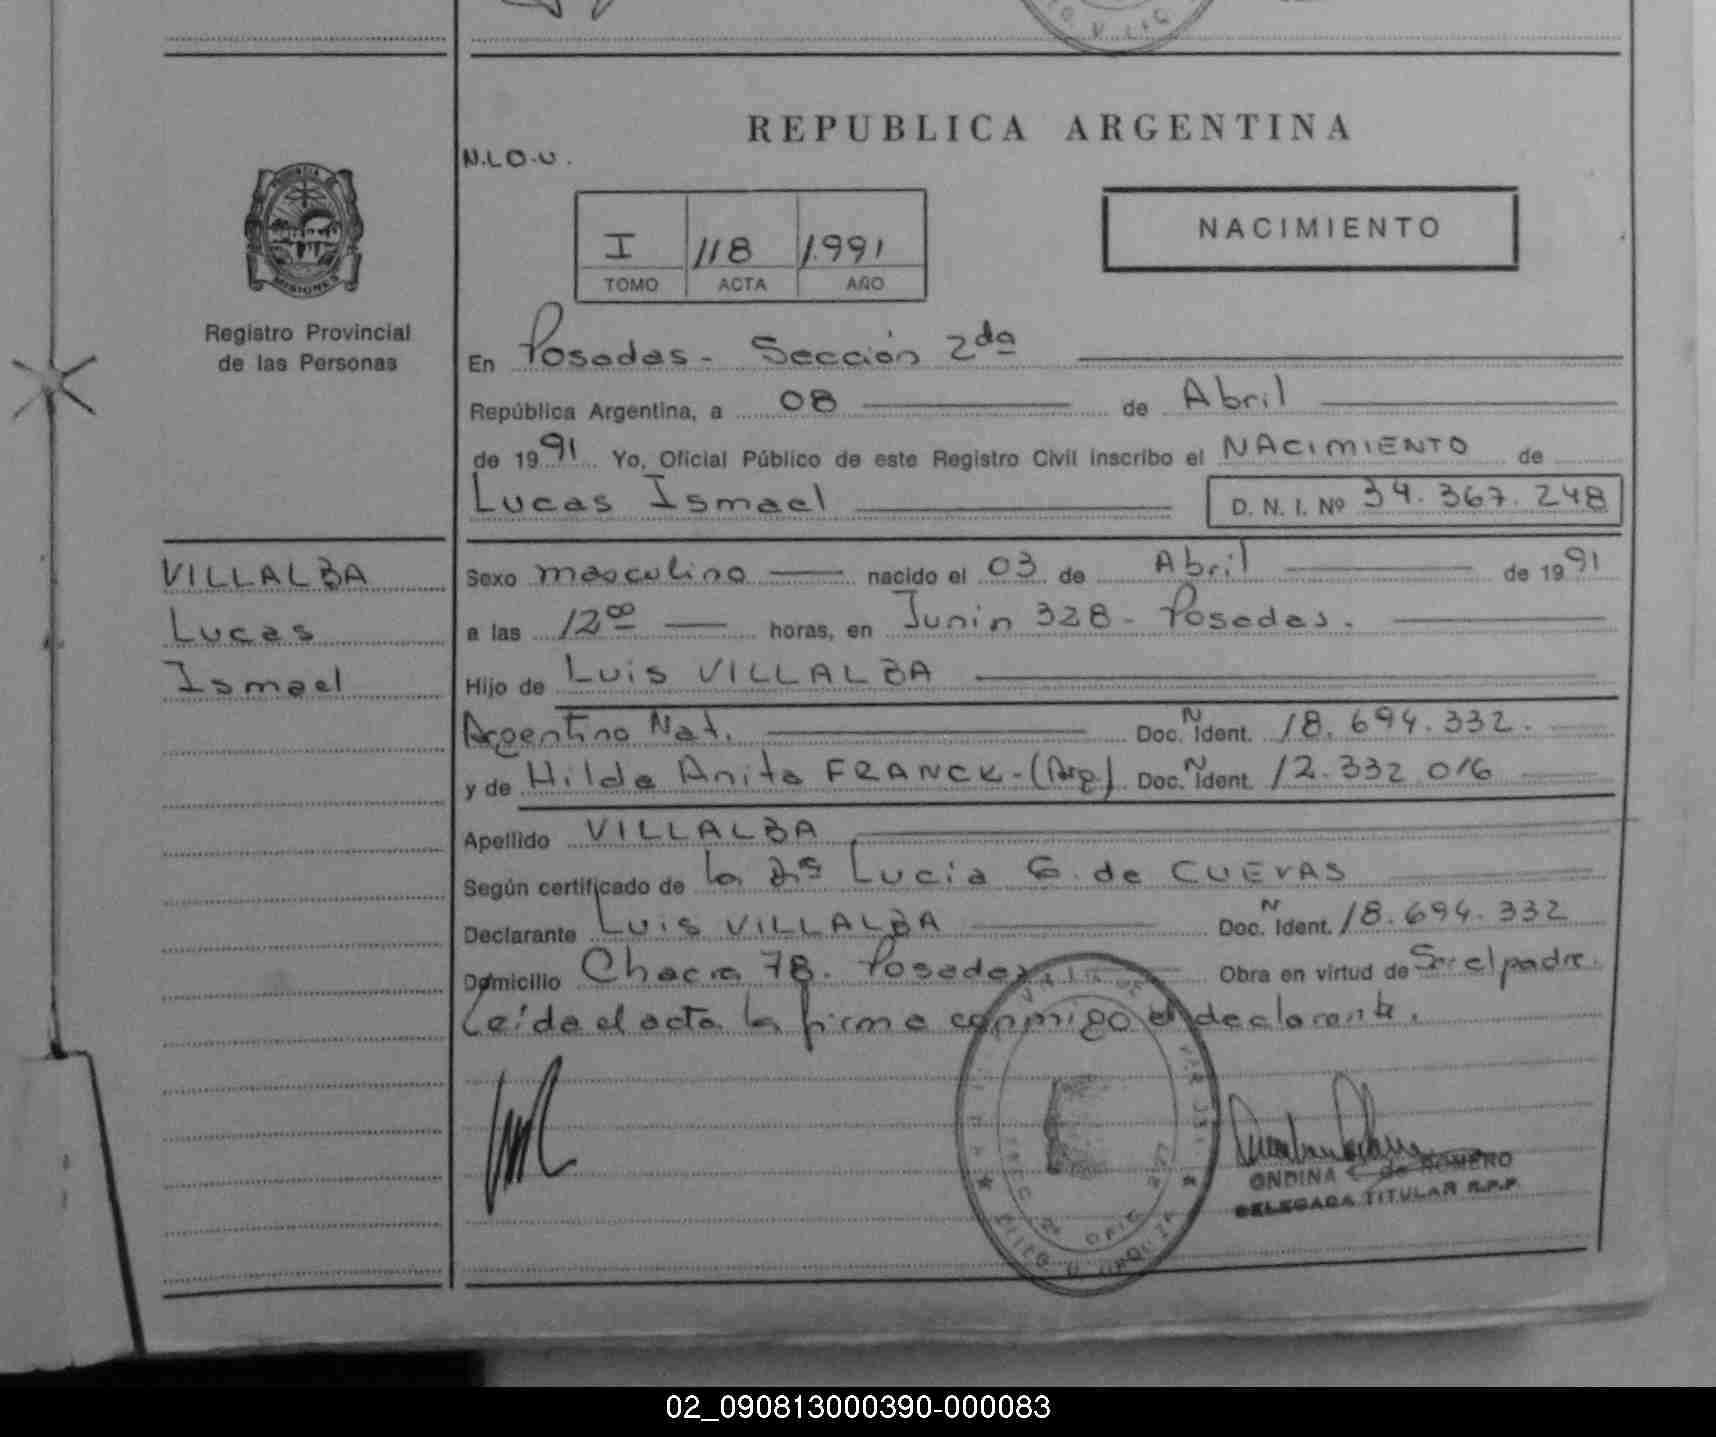 REPUBLICA ARGENTINA
N.L.O.U.
PROVINCIA
MISIONES
Registro Provincial
de las Personas
I 118 1.991
TOMO ACTA AÑO
NACIMIENTO
En Posadas - Sección 2da
República Argentina, a 08 de Abril
de 1991 Yo, Oficial Público de este Registro Civil inscribo el NACIMIENTO de
Lucas Ismael D. N. I. Nº 34.367.248
VILLALBA
Lucas
Ismael
Sexo masculino nacido el 03 de Abril de 1991
a las 12 00 horas, en Junin 328 - Posadas.
Hijo de Luis VILLALBA
Argentino Nat. Doc. N Ident. 18.694.332.
y de Hilda Anita FRANCK - (Arg.) Doc. N Ident. 12.332 016
Apellido VILLALBA
Según certificado de la Lucia G. de CUEVAS
Declarante Luis VILLALBA Doc. N Ident. 18.694.332
Domicilio Chacra 78. Posadas Obra en virtud de Ser el padre.
Leída el acta la firma conmigo el declarante.
ONDINA C. de ROMERO
DELEGADA TITULAR R.P.P.
02_090813000390-000083